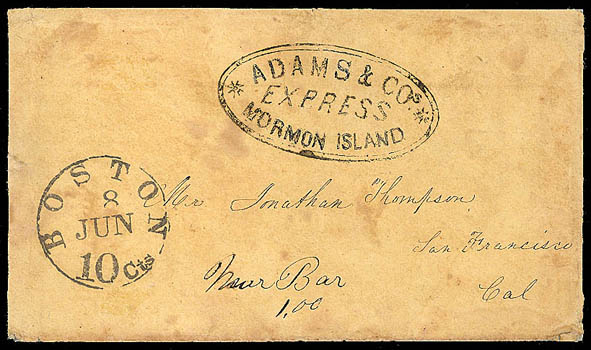 ADAMS & CO'S
EXPRESS
MORMON ISLAND
BOSTON
8
JUN
10 Cts
Mr Jonathan Thompson
San Francisco
Cal
Bar
1.00